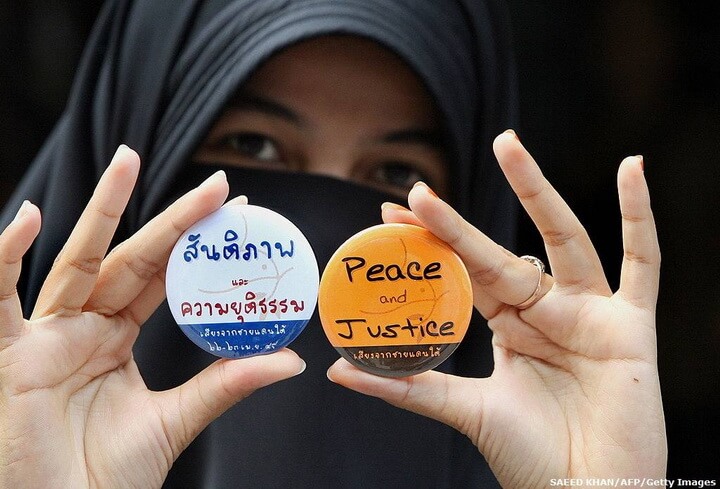 สันติภาพ
และ
ความยุติธรรม
เสียงจากชายแดนใต้
๒๒-๒๓ เม.ย. ๔๙
Peace
and
Justice
เสียงจากชายแดนใต้
SAEED KHAN/AFP/Getty Images